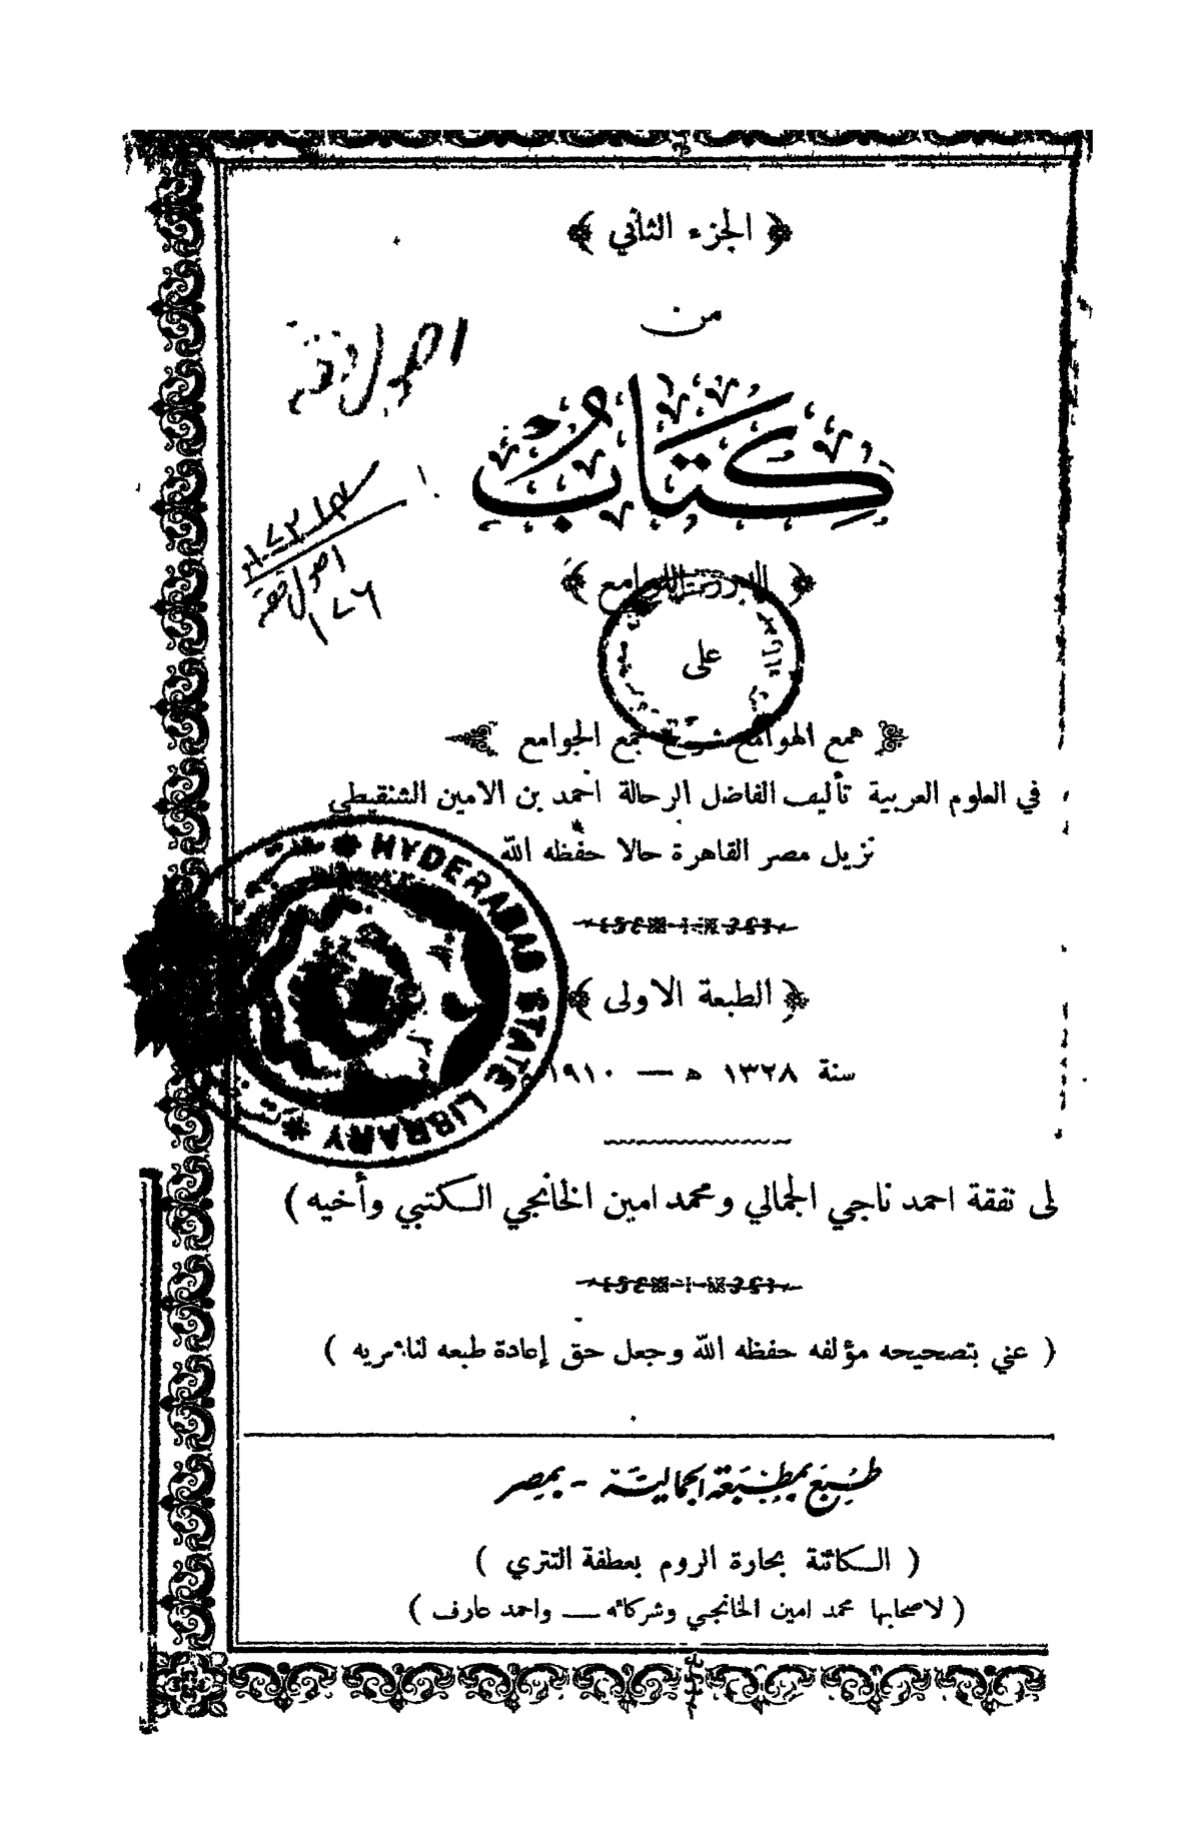 ﴿ الجزء الثاني ﴾
من
كتَابُ
اصول فقه
﴿ الدرر اللوامع ﴾
اصول فقه
١٢٦
على
﴿ همع الهوامع شرح جمع الجوامع ﴾
في العلوم العربية تأليف الفاضل الرحالة أحمد بن الامين الشنقيطي
نزيل مصر القاهرة حالا حفظه الله
HYDERABAD STATE LIBRARY
﴿ الطبعة الاولى ﴾
سنة ١٣٢٨ ه — ١٩١٠
نفقة احمد ناجي الجمالي ومحمد امين الخانجي الكتبي وأخيه )
( عني بتصحيحه مؤلفه حفظه الله وجعل حق إعادة طبعه لناشريه )
طُبِعَ بمِطْبَعَة الجماليَّة - بمِصر
( الكائنة بحارة الروم بعطفة التتري )
( لاصحابها محمد امين الخانجي وشركائه — واحمد عارف )